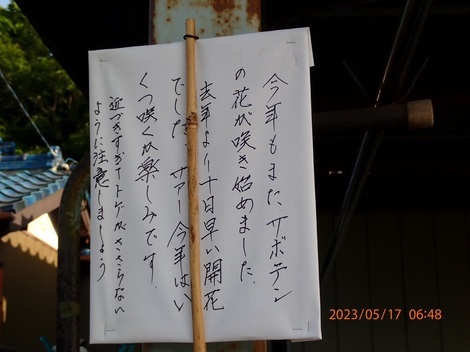 今年もまたサボテン
の花が咲き始めました。
去年より十日早い開花
でした。サァー今年はい
くつ咲くか楽しみです。
近づきすぎてトゲがささらない
ように注意しましょう
2023/05/17 06:48